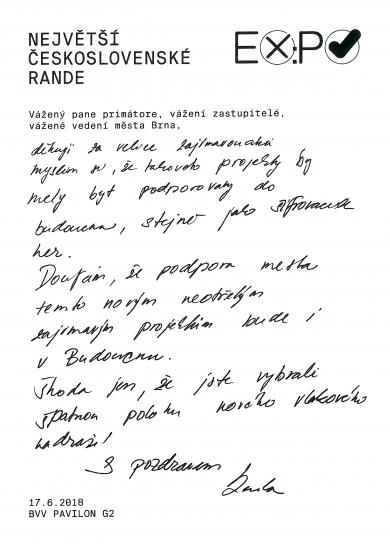 NEJVĚTŠÍ
ČESKOSLOVENSKÉ
RANDE
EXPO
Vážený pane primátore, vážení zastupitelé,
vážené vedení města Brna,
děkuji za velice zajímavou akci
myslím si, že takovéto projekty by
měly být podporovány do
budoucna, stejně jako šifrovacích
her.
Doufám, že podpora města
těmto novým neotřelým
zajímavým projektům bude i
v Budoucnu.
Škoda jen, že jste vybrali
špatnou polohu nového vlakového
nádraží!
S pozdravem
17.6.2018
BVV PAVILON G2